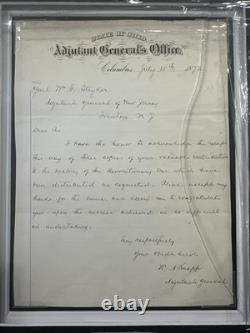 STATE OF OHIO
Adjutant General's Office,
Columbus, July 15th 187
Genl Wm S. Stryker
Adjutant General of New Jersey
Trenton N.J
Dear Sir
I have the honor to acknowledge the receipt
this day of three copies of your valuable contribution
to the history of the Revolutionary War which have
been distributed as requested. Please accept my
thanks for the same, and permit me to congratulate
you upon the success achieved in so difficult
an undertaking.
Very respectfully
Your Obedt Servt
Adjutant General